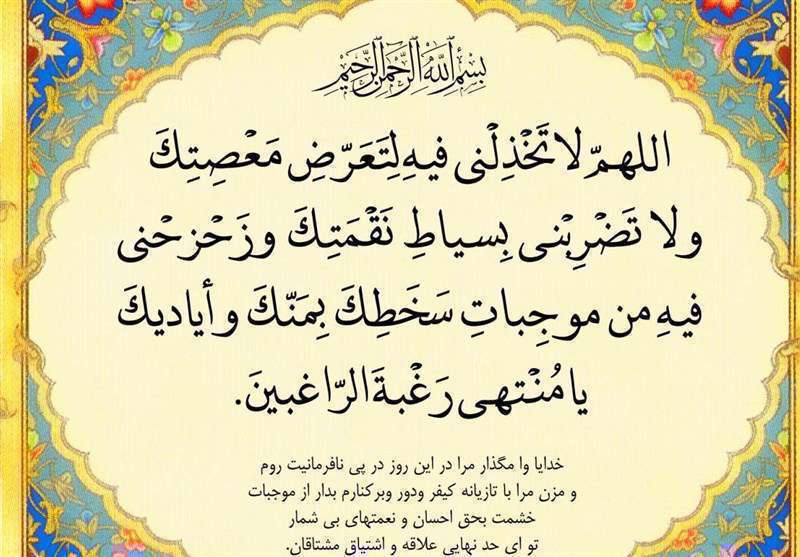 بِسْمِ اللَّهِ الرَّحْمَنِ الرَّحِيمِ
اللهمّ لا تَخْذِلْنی فیهِ لِتَعَرّضِ مَعْصِیَتِكَ
ولا تَضْرِبْنی بِسیاطِ نَقْمَتِكَ وزَحْزحْنی
فیهِ من موجِباتِ سَخَطِكَ بِمَنّكَ وأیادیكَ
یا مُنْتهی رَغْبةَ الرّاغبینَ.
خدایا وا مگذار مرا در این روز در پی نافرمانیت روم
و مزن مرا با تازیانه کیفر ودور وبرکنارم بدار از موجبات
خشمت بحق احسان و نعمتهای بی شمار
تو ای حد نهایی علاقه و اشتیاق مشتاقان.